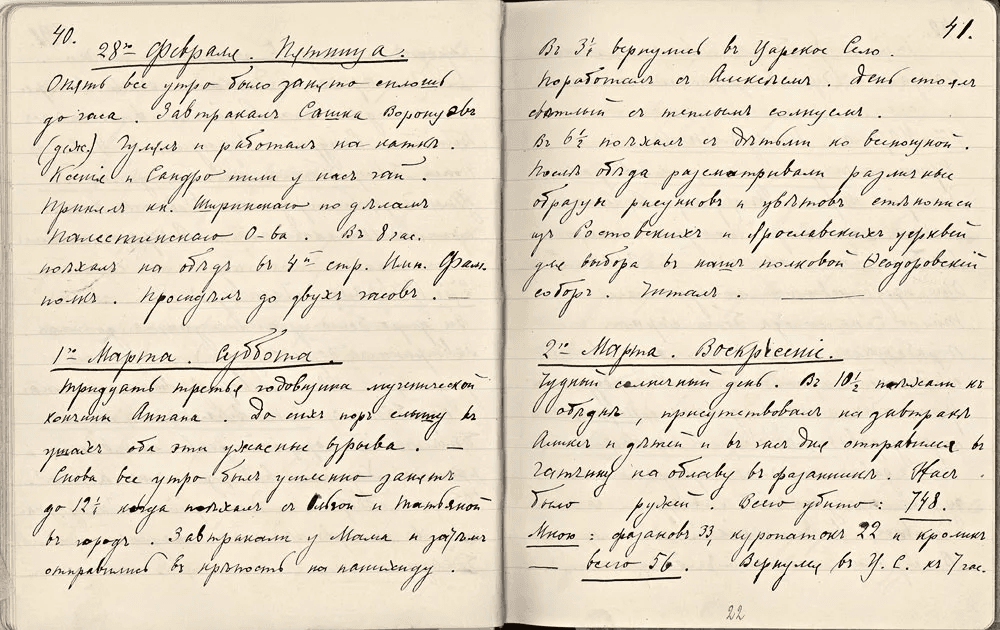 40.
28го Февраля. Пятница.
Опять все утро было занято сплошь
до часа. Завтракалъ Сашка Воронцовъ
(деж.) Гулялъ и работалъ на каткѣ.
Ксенія и Сандро пили у насъ чай.
Принялъ кн. Ширинскаго по дѣламъ
Палестинскаго О-ва. Въ 8 час.
поѣхалъ на обѣдъ въ 4й стр. Имп. Фам.
полкъ. Просидѣлъ до двухъ часовъ. —
1го Марта. Суббота.
Тридцать третья годовщина мученической
кончины Анпапа. До сихъ поръ слышу въ
ушахъ оба эти ужасные взрыва. —
Снова все утро былъ усиленно занятъ
до 12½ когда поѣхалъ съ Ольгой и Татьяной
въ городъ. Завтракали у Мама и затѣмъ
отправились въ крѣпость на панихиду.
41.
Въ 3½ вернулись въ Царское Село.
Поработалъ съ Алексѣемъ. День стоялъ
свѣтлый съ теплымъ солнцемъ.
Въ 6½ поѣхалъ съ дѣтьми ко всенощной.
Послѣ обѣда разсматривали различные
образцы рисунковъ и цвѣтовъ стѣнописи
изъ Ростовскихъ и Ярославскихъ церквей
для выбора въ нашъ полковой Ѳеодоровскій
соборъ. Читалъ. —
2го Марта. Воскресеніе.
Чудный солнечный день. Въ 10½ поѣхали къ
обѣднѣ, присутствовалъ на завтракѣ
Аликсъ и дѣтей и въ часъ дня отправился въ
Гатчину на облаву въ фазанникъ. Насъ
было ружей. Всего убито: 748.
Мною: фазановъ 33, куропатокъ 22 и кроликъ
— всего 56. Вернулся въ Ц. С. къ 7 час.
22